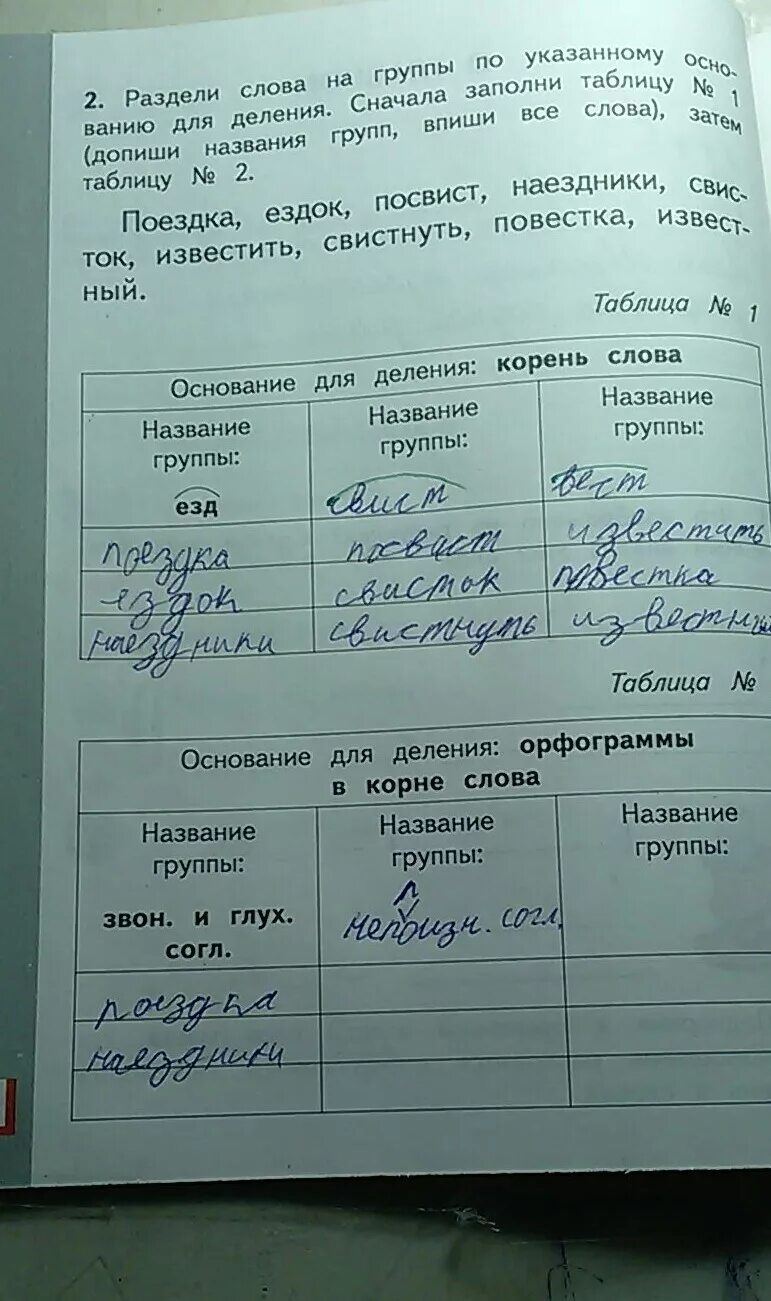 2. Раздели слова на группы по указанному осно-
ванию для деления. Сначала заполни таблицу № 1
(допиши названия групп, впиши все слова), затем
таблицу № 2.
Поездка, ездок, посвист, наездники, свис-
ток, известить, свистнуть, повестка, извест-
ный.
Таблица № 1
Основание для деления: корень слова
Название группы:
езд
Название группы:
свист
Название группы:
вест
поездка посвист известить
ездок свисток повестка
наездники свистнуть известный
Таблица №
Основание для деления: орфограммы
в корне слова
Название группы:
звон. и глух.
согл.
Название группы:
непроизн. согл.
Название группы:
поездка
наездники